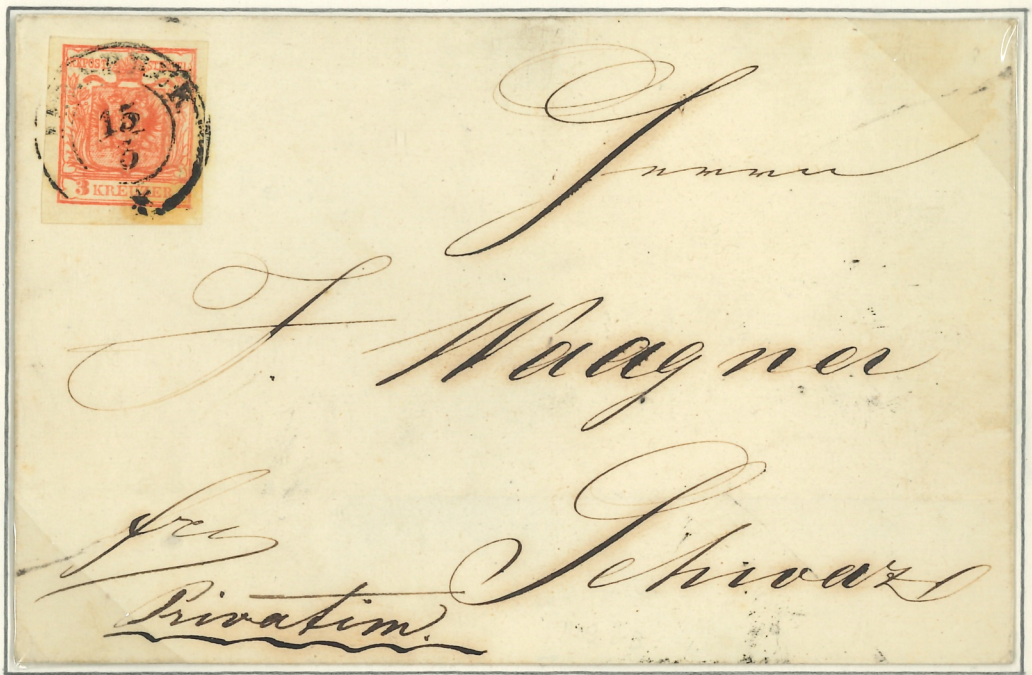 15
5
3 KREUZER
Herrn
J. Waagner
Schwaz
frco
Privatim.